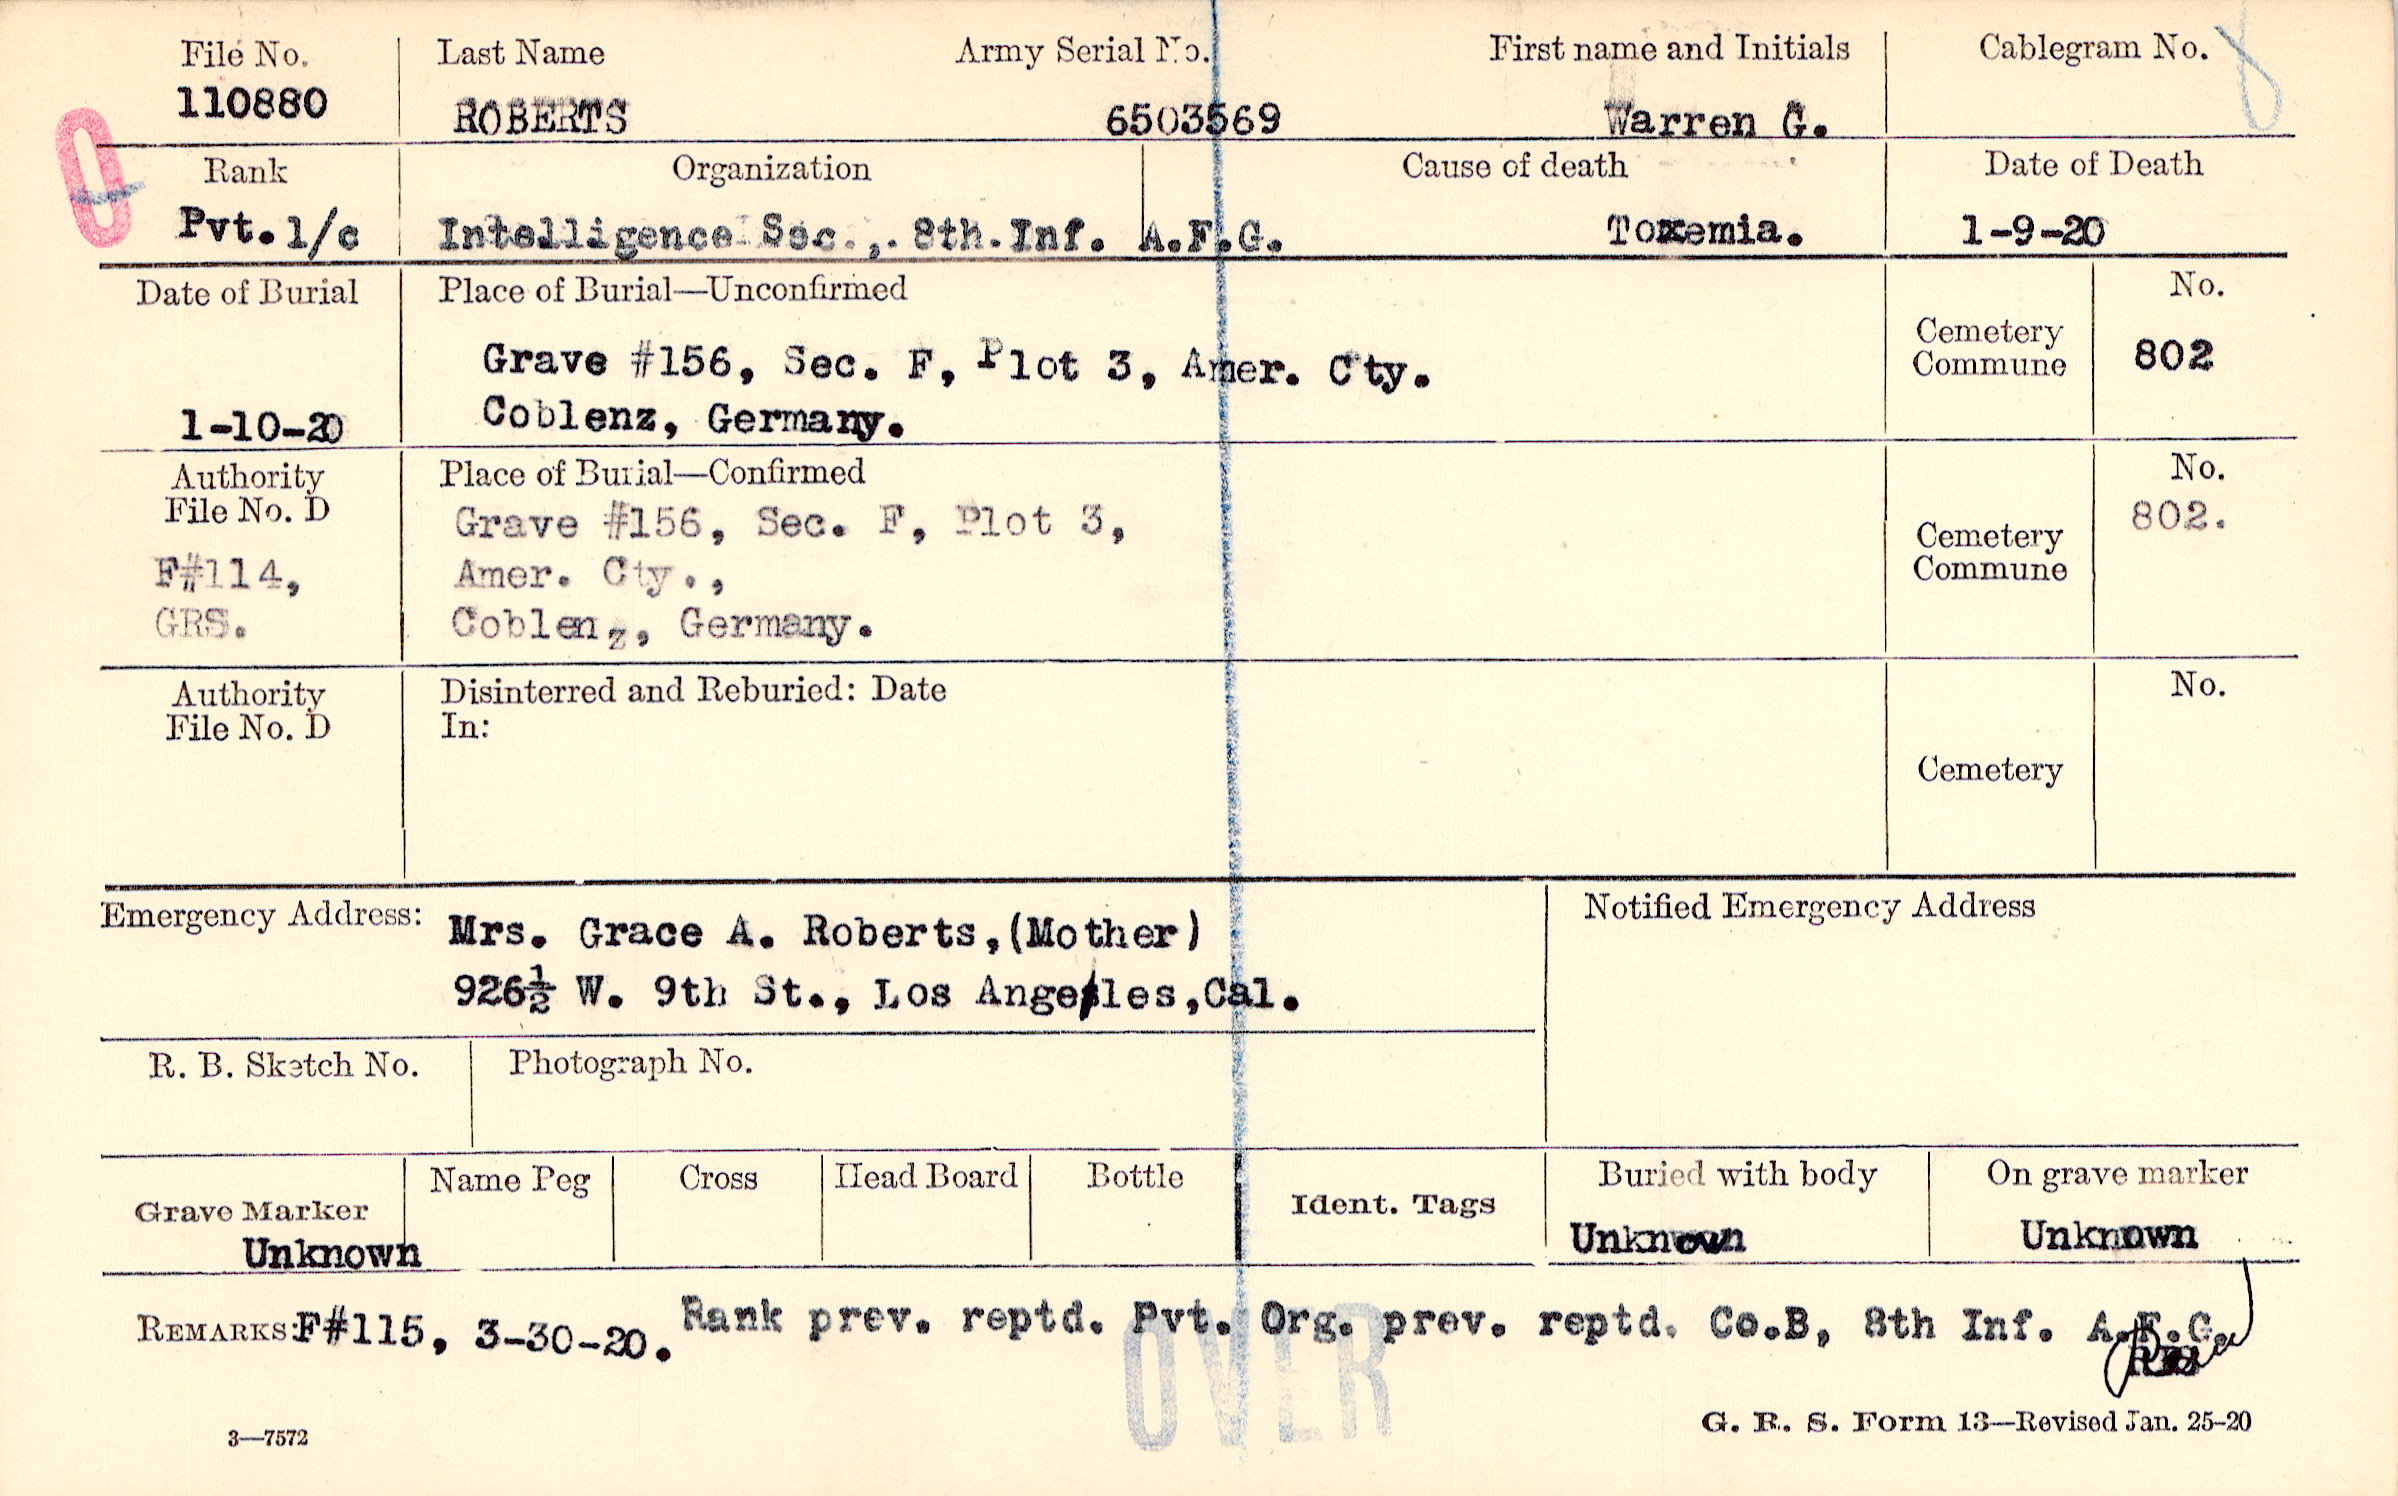 File No. Last Name Army Serial No. First name and Initials Cablegram No.
110880 ROBERTS 6503569 Warren G.
Rank Organization Cause of death Date of Death
Pvt. 1/c Intelligence Sec., 8th.Inf. A.F.G. Toxemia. 1-9-20
Date of Burial Place of Burial—Unconfirmed No.
Cemetery
Commune
802
Grave #156, Sec. F, Plot 3, Amer. Cty.
1-10-20 Coblenz, Germany.
Authority Place of Burial—Confirmed No.
File No. D Grave #156, Sec. F, Plot 3, 802.
Cemetery
Commune
F#114, Amer. Cty.,
GRS. Coblenz, Germany.
Authority Disinterred and Reburied: Date No.
File No. D In:
Cemetery
Emergency Address: Mrs. Grace A. Roberts,(Mother) Notified Emergency Address
926½ W. 9th St., Los Angeles,Cal.
R. B. Sketch No. Photograph No.
Grave Marker Name Peg Cross Head Board Bottle Ident. Tags Buried with body On grave marker
Unknown Unknown Unknown
REMARKS: F#115, 3-30-20. Rank prev. reptd. Pvt. Org. prev. reptd. Co.B, 8th Inf. A.F.G.
OVER
3—7572 G. R. S. Form 13—Revised Jan. 25-20